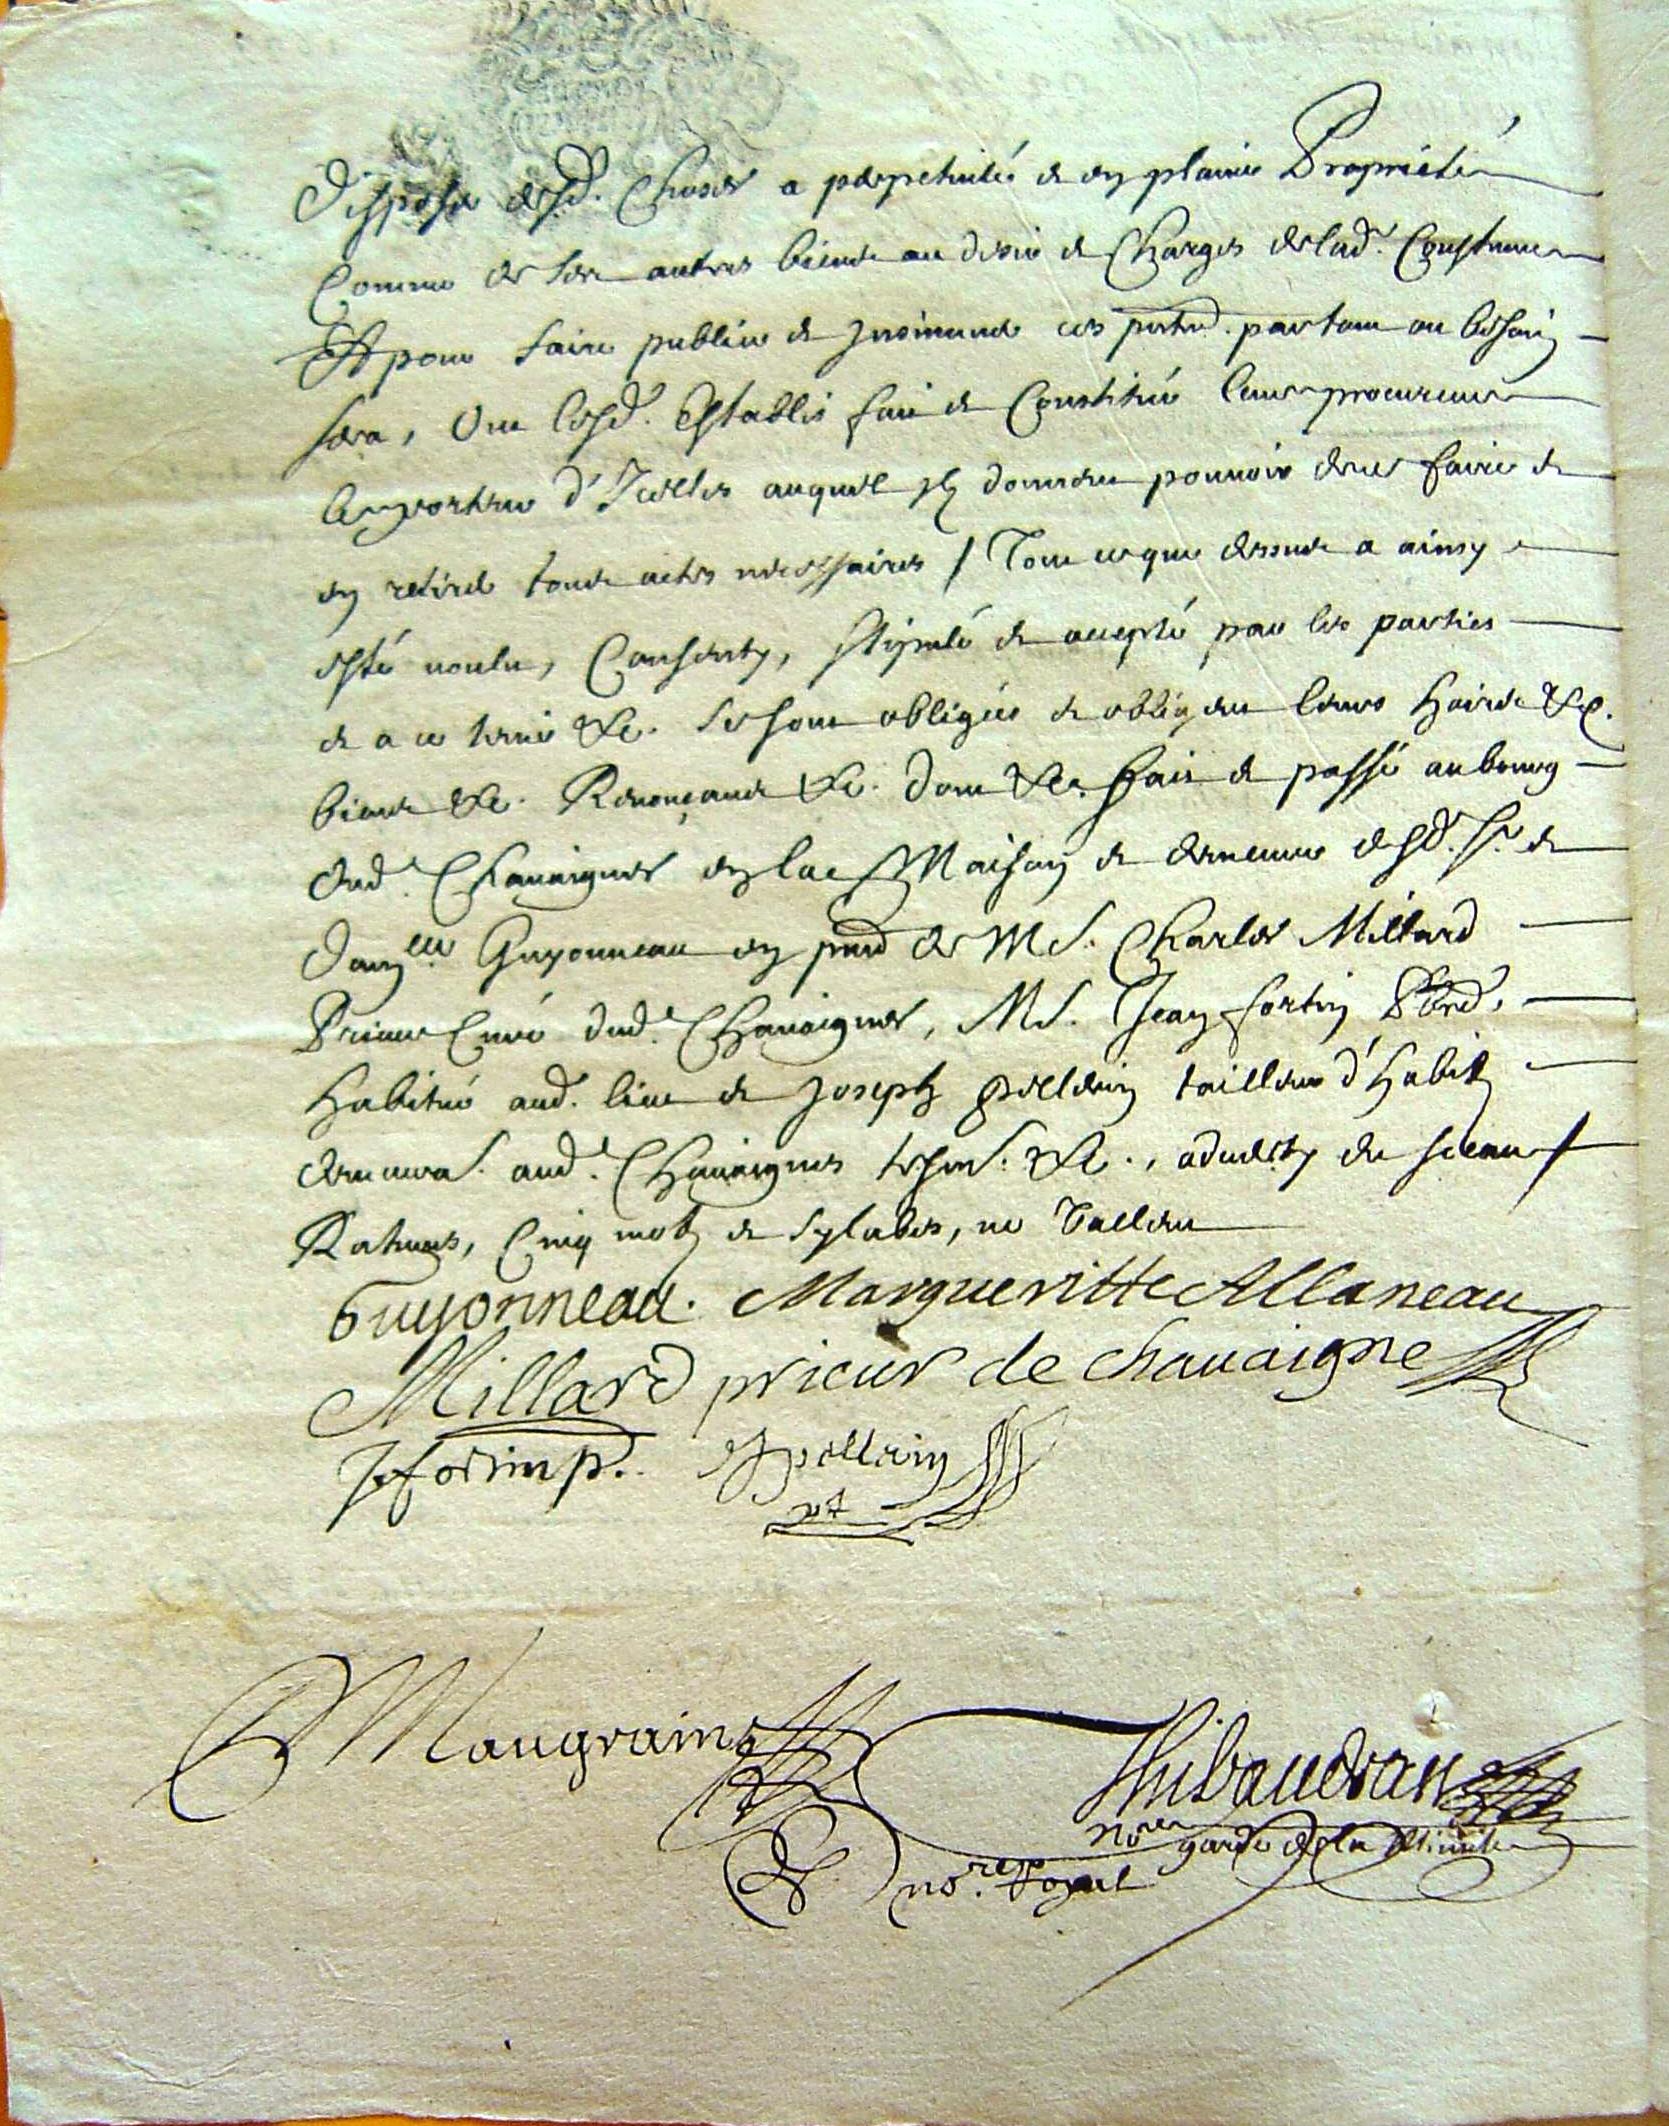 disposer desd. Choses a perpetuité & en plaine Proprieté
Comme de ses autres biens au desir & Charges de lad. Coustume
Et pour faire publier & Insinuer ces pntes. partout ou besoin
sera, Ont lesd. Establis fait & Constitué leur procureur
le porteur d'Icelles auquel ils donnent pouvoir de ce faire &
en retirer tous actes necessaires / Tout ce que dessus a ainsy
esté voulu, Consenty, stipulé & accepté par les parties
& a ce tenir &c. se sont obligées & obligent leurs hoirs &c.
biens &c. Renonçans &c. dont &c. fait & passé au bourg
dud. Chavaignes en la Maison & demeure desd. Sr. &
damelle Guyonneau en pnce de M S. Charles Millard
Prieur Curé dud. Chavaignes, M S. Jean fortin Pbre,
habitué aud. lieu & Joseph pellerin tailleur d'habits
demeurans. aud. Chavaignes tesms. &c., advertis du sceau /
Ratures, Cinq mots & sylabes, ne Vallent
Guyonneau. Margueritte Allaneau
Millard prieur de chavaigne
J fortin p. J pellerin
Maugrain
Thibaudeau
nore garde de la Minutte
nore. Royal